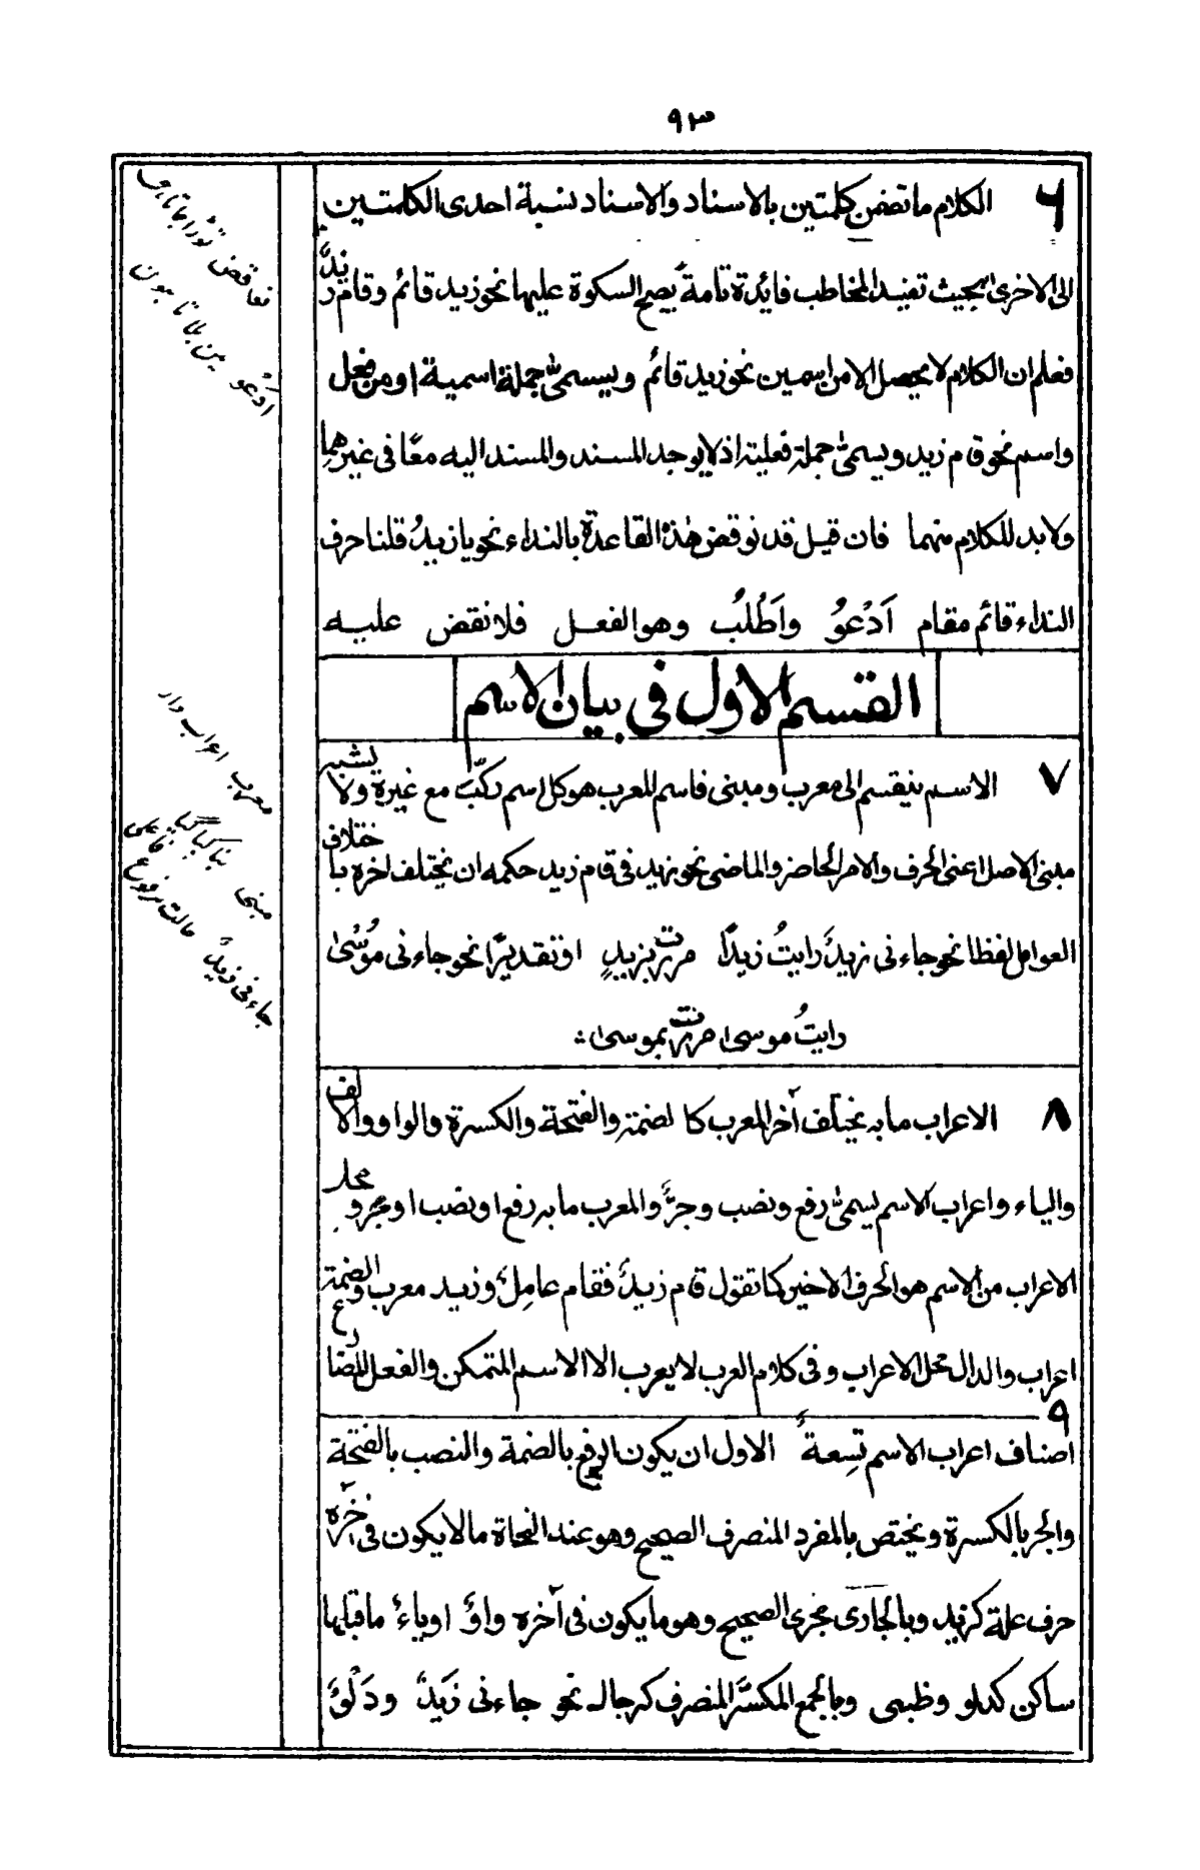 ٩٣
٦ الكلام ما تضمن كلمتين بالاسناد والاسناد نسبة احدى الكلمتين
الى الاخرى بحيث تفيد المخاطب فائدة تامة يصح السكوة عليها نحو زيد قائم وقام زيدٌ
فعلم ان الكلام لا يحصل الا من اسمين نحو زيد قائم ويسمىٰ جملة اسمية او من فعل
واسم نحو قام زيد ويسمىٰ جملة فعلية اذ لا يوجد المسند والمسند اليه معًا فى غيرهما
ولا بد للكلام منهما فان قيل قد نوقض هٰذه القاعدة بالنداء نحو يا زيدُ قلنا حرف
النداء قائم مقام اَدْعُوُ واَطْلُبُ وهو الفعل فلا نقض عليه
القسم الاول فى بيان الاسم
٧ الاسم ينقسم الى معرب ومبنى فاسم المعرب هو كل اسم ركّبَ مع غيره ولا يشبه
مبنى الاصل اعنى الحرف والامر الحاضر والماضى نحو زيد فى قام زيد حكمه ان يختلف اخره باختلاف
العوامل لفظا نحو جاءنى زيدٌ رايتُ زيدًا مررت بزيدٍ او تقديرًا نحو جاءنى مُوسٰى
رايتُ موسىٰ مررت بموسىٰ :
٨ الاعراب ما به يختلف آخر المعرب كا لضمة والفتحة والكسرة والواو والالف
والياء واعراب الاسم يسمىٰ رفع ونصب وجرٌّ والمعرب ما به رفع او نصب او جر ومحل
الاعراب من الاسم هو الحرف الاخير كما تقول قام زيدٌ فقام عاملٌ وزيد معرب والضمة
اعراب والدال محل الاعراب وفى كلام العرب لا يعرب الا الاسم المتمكن والفعل المضارع
٩
اصناف اعراب الاسم تسعةٌ الاول ان يكون الرفع بالضمة والنصب بالفتحة
والجر بالكسرة ويختص بالمفرد المنصرف الصحيح وهو عند النحاة ما لا يكون فى آخره
حرف علة كزيد وبالجارى مجرى الصحيح وهو ما يكون فى آخره واوٌ او ياءٌ ما قبلها
ساكن كدلو وظبى وبالجمع المكسّر المنصرف كرجال نحو جاءنى زَيدٌ ودَلْوٌ
اَدْعُو مین بلاتا ہوں
معرب اعراب دار
مبنى بنا کیا گیا
جاءنى زیدٌ حالت مرفوع فاعلی